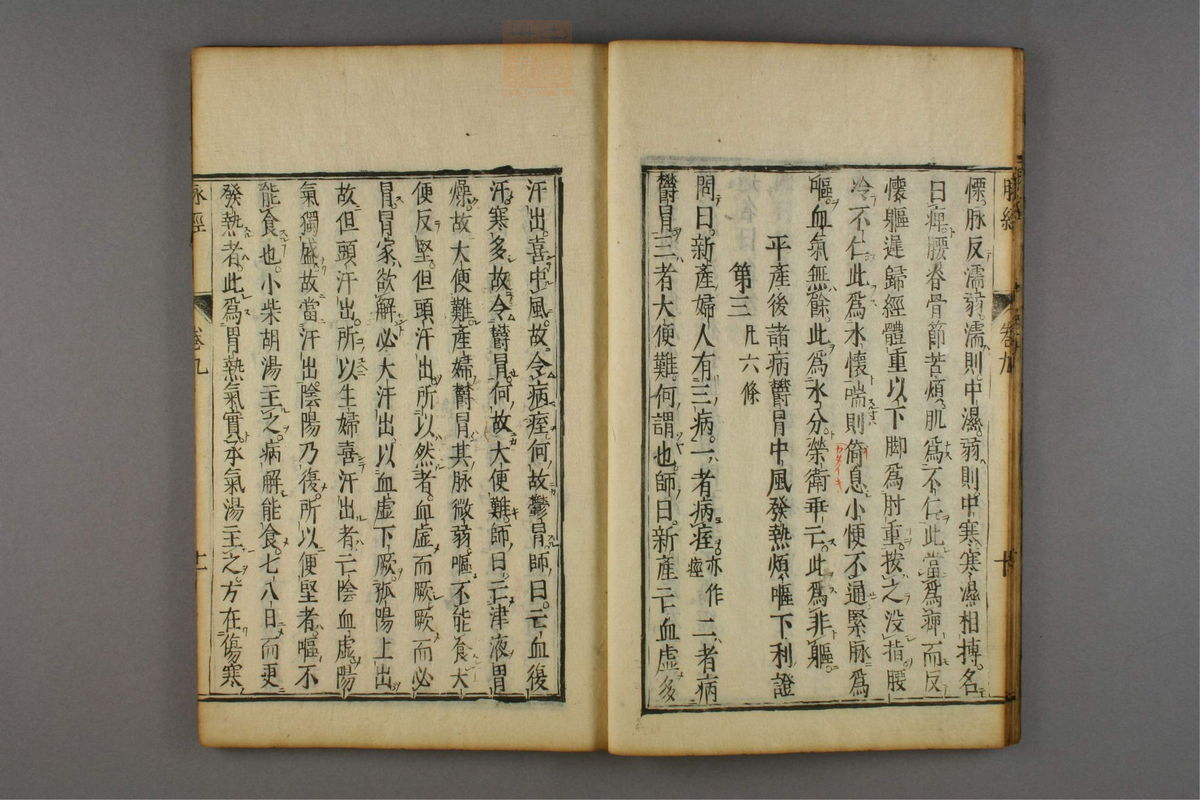 脉經 卷九 十
慄脉反濡弱濡則中濕弱則中寒寒濕相搏名
曰痺腰脊骨節苦煩肌爲不仁此當爲痺而反
懷軀遲歸經體重以下脚爲胕重按之没指腰
冷不仁此爲水懷喘則倚息小便不通緊脉爲
嘔血氣無餘此爲水分榮衛乖亡此爲非軀
平產後諸病鬱冒中風發熱煩嘔下利證
第三 凡六條
問曰新產婦人有三病一者病痙亦作痓二者病
鬱冒三者大便難何謂也師曰新產亡血虛多
汗出喜中風故令病痙何故鬱冒師曰亡血復
汗寒多故令鬱冒何故大便難師曰亡津液胃
燥故大便難產婦鬱冒其脉微弱嘔不能食大
便反堅但頭汗出所以然者血虛而厥厥而必
冒冒家欲解必大汗出以血虛下厥孤陽上出
故但頭汗出所以生婦喜汗出者亡陰血虛陽
氣獨盛故當汗出陰陽乃復所以便堅者嘔不
能食也小柴胡湯主之病解能食七八日而更
發熱者此爲胃熱氣實承氣湯主之方在傷寒
脉經 卷九